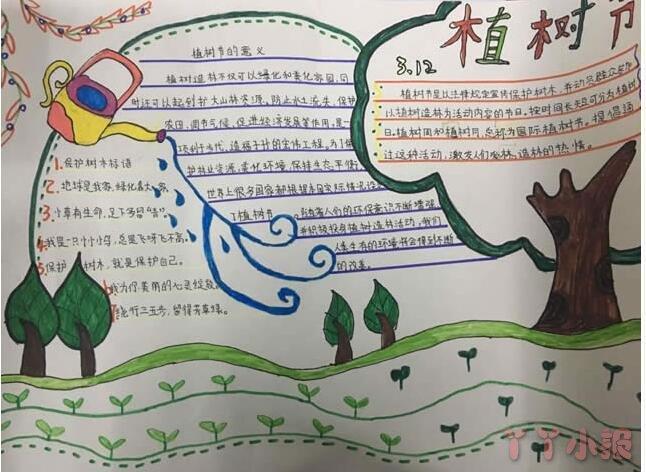 植树节
3.12
植树节是以法律规定宣传保护树木,并动员群众参加
以植树造林为活动内容的节日。按时间长短可分为植树
日、植树周和植树月,总称为国际植树节。提倡通
过这种活动,激发人们爱林、造林的热情。
植树节的意义
植树造林不仅可以绿化和美化家园,同
时还可以起到扩大山林资源、防止水土流失、保护
农田、调节气候、促进经济发展等作用,是一
项利于当代、造福子孙的宏伟工程。为了保
护林业资源,美化环境,保持生态平衡
世界上很多国家都根据本国实际情况设
了植树节。
随着人们的环保意识不断增强,
并积极投身植树造林活动,我们
人类生存的环境将会得到不断
的改善。
1.保护树木标语
2.地球是我家,绿化靠大家
3.小草有生命,足下多留"青"。
4.我是一只小小鸟,总是飞呀飞不高。
5.保护树木,就是保护自己。
6.我为你美丽的心灵绽放
7.绕行三五步,留得芳草绿。
丫丫小报